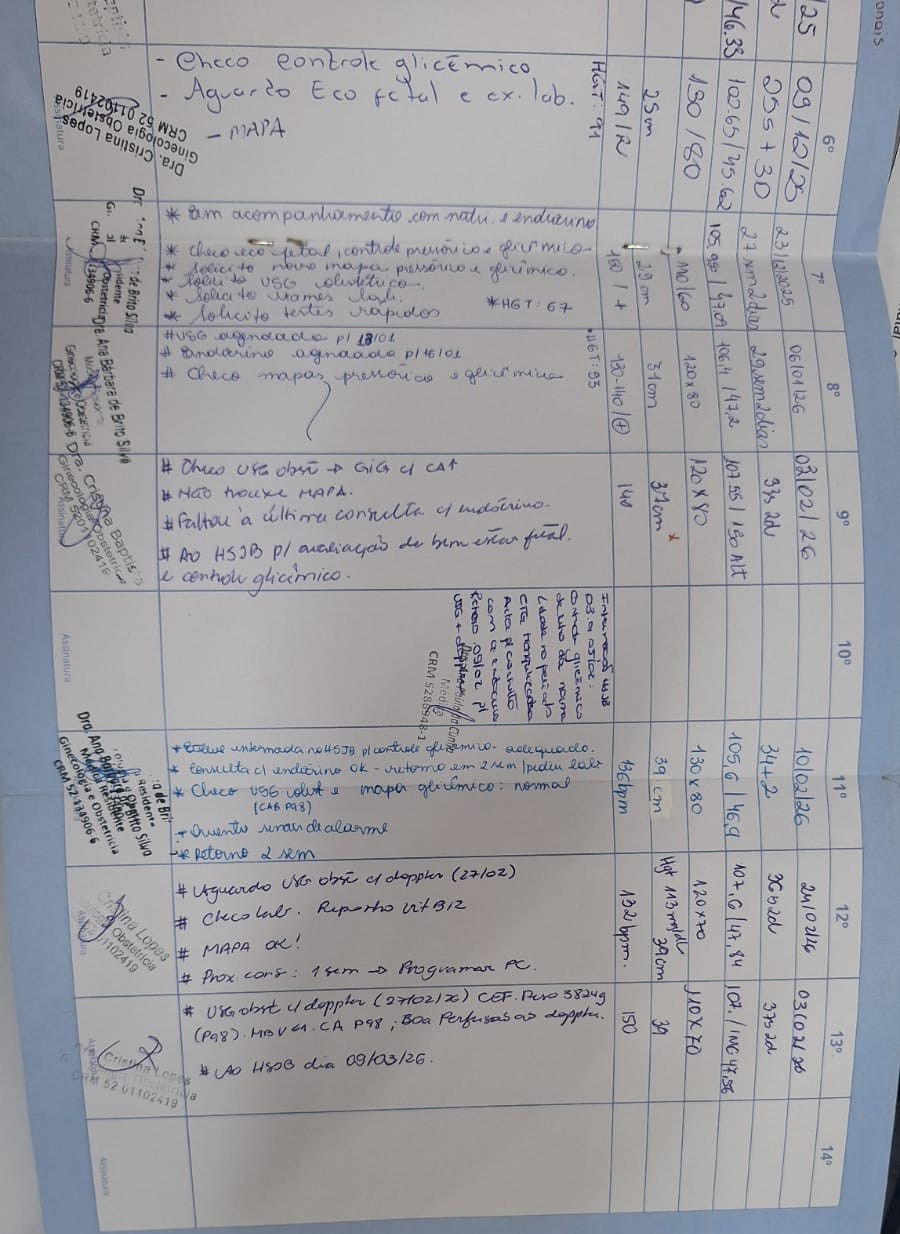 onais
/25
46.33
6º
09/12/25
25s + 30
102.65 / 45.62
130/80
25cm
149/R
HGT: 91
- Checo controle glicêmico
- Aguardo Eco fetal e ex. lab.
- MAPA
Dra. Cristina Lopes
Ginecologia Obstetrícia
CRM 52 01102419
Assinatura
7º
23/12/2025
27 sem 2 dias
29cm
* Em acompanhamento com nutri e endocrino
* Checo eco fetal, controle pressórico e glicêmico
* Solicito novo mapa pressórico e glicêmico.
* Solicito USG obstétrico.
* Solicito exames lab.
* Solicito testes rápidos
* HGT: 67
de Brito Silva
Assinatura
8º
06/01/26
29 sem 2 dias
106,4 / 47,2
120x80
31cm
130-140/+
* HGT: 93
# USG agendado p/ 13/01
# Endocrino agendado p/ 16/01
# Checo mapas pressórico e glicêmico
Dra. Ana Bárbara de Brito Silva
9º
03/02/26
33s 2d
120x80
37cm *
140
# Checo USG obst → GIG c/ CA↑
# Não trouxe MAPA.
# Faltou à última consulta c/ endócrino.
# Ao HSJB p/ avaliação de bem estar fetal.
e controle glicêmico.
Dra. Cristina Baptista
Ginecologia Obstetrícia
CRM 5201102419
Assinatura
10º
Internação HSJB
controle glicêmico
dentro da norma
CTG tranquilizadora
com a endocrino
Retorno 09/02 p/
USG + doppler
CRM 5286948-1
Assinatura
11º
10/02/26
34+2
105,6 / 46,9
130x80
39 cm
136bpm
* Esteve internada no HSJB p/ controle glicêmico - adequado.
* Consulta c/ endócrino OK - retorno em 2 sem / pediu labs
* Checo USG obst e mapa glicêmico: normal
(CAB P98)
- Oriento sinais de alarme
* Retorno 2 sem
Ginecologia e Obstetrícia
CRM 52-134906-6
12º
24/02/26
36s2d
107,6 / 47,84
120x70
Hgt 113mg/dl
39cm
132bpm.
# Aguardo USG obst c/ doppler (27/02)
# Checo labs. Reponho vit B12
# MAPA OK!
# Prox cons: 1 sem → Programar PC.
Cristina Lopes
Obstetrícia
01102419
13º
37s 2d
107. / IMC 47,56
110x70
39
150
# USG obst c/ doppler (27/02/26) CEF. Peso 3824g
(P98). MBV 6.1. CA P98; Boa Perfusão ao doppler.
# Ao HSJB dia 09/03/26.
Cristina Lopes
Obstetrícia
CRM 52 01102419
14º
Assinatura